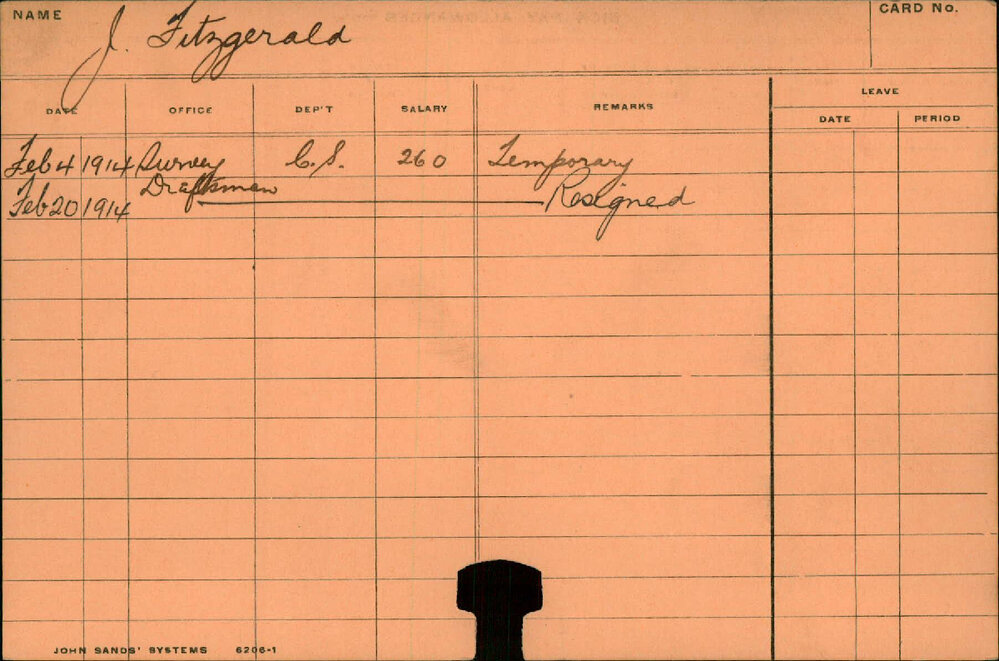 NAME J. Fitzgerald CARD No.
LEAVE
DATE OFFICE DEP'T SALARY REMARKS DATE PERIOD
Feb 4 1914 Survey C.S. 260 Temporary
Draftsman
Feb 20 1914 Resigned
JOHN SANDS' SYSTEMS 6206-1